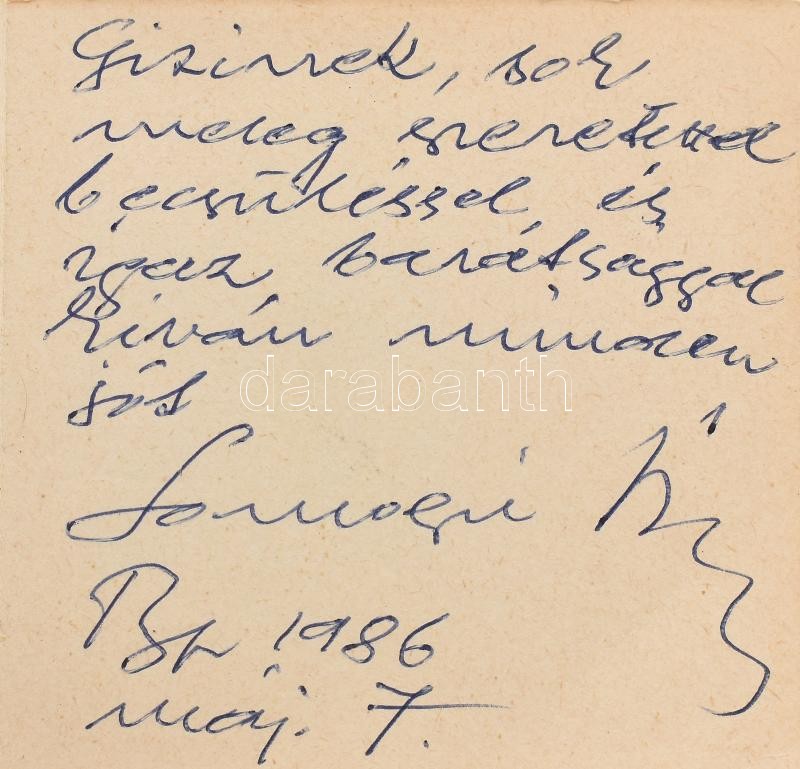 Gizinek, sok
meleg szeretettel
becsüléssel és
igaz barátsággal
kiván minden
jót
darabanth
Somogyi
Bp 1986
máj. 7.